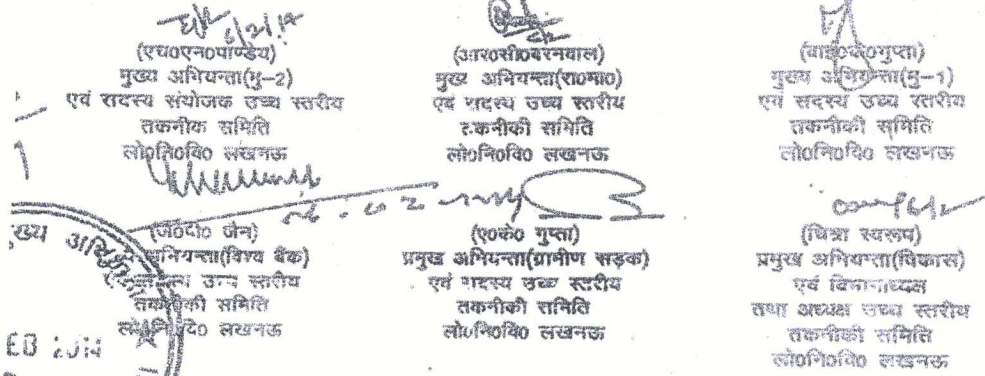 (एच०एन०पाण्डेय)
मुख्य अभियन्ता(मु-2)
एवं सदस्य संयोजक उच्च स्तरीय
तकनीक समिति
लो०नि०वि० लखनऊ
(आर०सी०बरनवाल)
मुख्य अभियन्ता(रा०मा०)
एवं सदस्य उच्च स्तरीय
तकनीकी समिति
लो०नि०वि० लखनऊ
(वाई०के०गुप्ता)
मुख्य अभियन्ता(मु-1)
एवं सदस्य उच्च स्तरीय
तकनीकी समिति
लो०नि०वि० लखनऊ
(जे०दी० जैन)
अभियन्ता(विश्व बैंक)
सदस्य उच्च स्तरीय
तकनीकी समिति
लो०नि०वि० लखनऊ
(ए०के० गुप्ता)
प्रमुख अभियन्ता(ग्रामीण सड़क)
एवं सदस्य उच्च स्तरीय
तकनीकी समिति
लो०नि०वि० लखनऊ
(चित्रा स्वरूप)
प्रमुख अभियन्ता(विकास)
एवं विभागाध्यक्ष
तथा अध्यक्ष उच्च स्तरीय
तकनीकी समिति
लो०नि०वि० लखनऊ